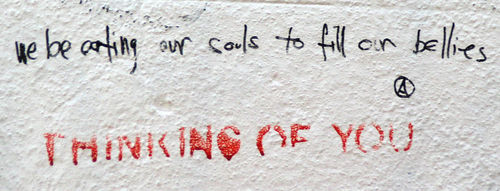 we be eating our souls to fill our bellies
Ⓐ
THINKING OF YOU